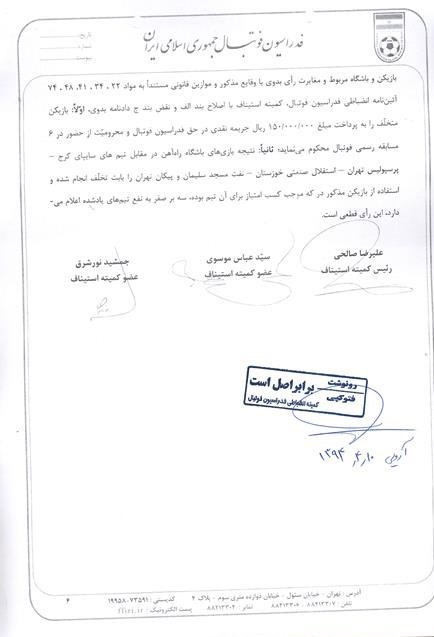 فدراسیون فوتبال جمهوری اسلامی ایران
تاریخ
شماره
پیوست
بازیکن و باشگاه مربوط و مغایرت رأی بدوی با وقایع مذکور و موازین قانونی مستنداً به مواد ۲۲ ، ۳۴ ، ۴۱ ، ۴۸ ، ۷۴
آئین‌نامه انضباطی فدراسیون فوتبال، کمیته استیناف با اصلاح بند الف و نقض بند ج دادنامه بدوی، اولاً: بازیکن
متخلّف را به پرداخت مبلغ ۱۵۰/۰۰۰/۰۰۰ ریال جریمه نقدی در حق فدراسیون فوتبال و محرومیّت از حضور در ۶
مسابقه رسمی فوتبال محکوم می‌نماید؛ ثانیاً: نتیجه بازی‌های باشگاه راه‌آهن در مقابل تیم های سایپای کرج –
پرسپولیس تهران – استقلال صنعتی خوزستان – نفت مسجد سلیمان و پیکان تهران را بابت تخلّف انجام شده و
استفاده از بازیکن مذکور در که موجب کسب امتیاز برای آن تیم بوده، سه بر صفر به نفع تیم‌های یادشده اعلام می-
دارد، این رأی قطعی است.
علیرضا صالحی
رئیس کمیته استیناف
سیّد عباس موسوی
عضو کمیته استیناف
جمشید نورشرق
عضو کمیته استیناف
رونوشت
فتوکپی
برابر اصل است
کمیته انضباطی فدراسیون فوتبال
۱۳۹۴,۴,۱۰
آدرس : تهران - خیابان سئول - خیابان دوازده متری سوم - پلاک ۴
کدپستی : ۷۳۵۹۱-۱۹۹۵۸
تلفن : ۸۸۲۱۳۳۰۷ - ۸۸۲۱۳۳۰۶
نمابر : ۸۸۲۱۳۳۰۲
پست الکترونیک : ffiri.ir
۴